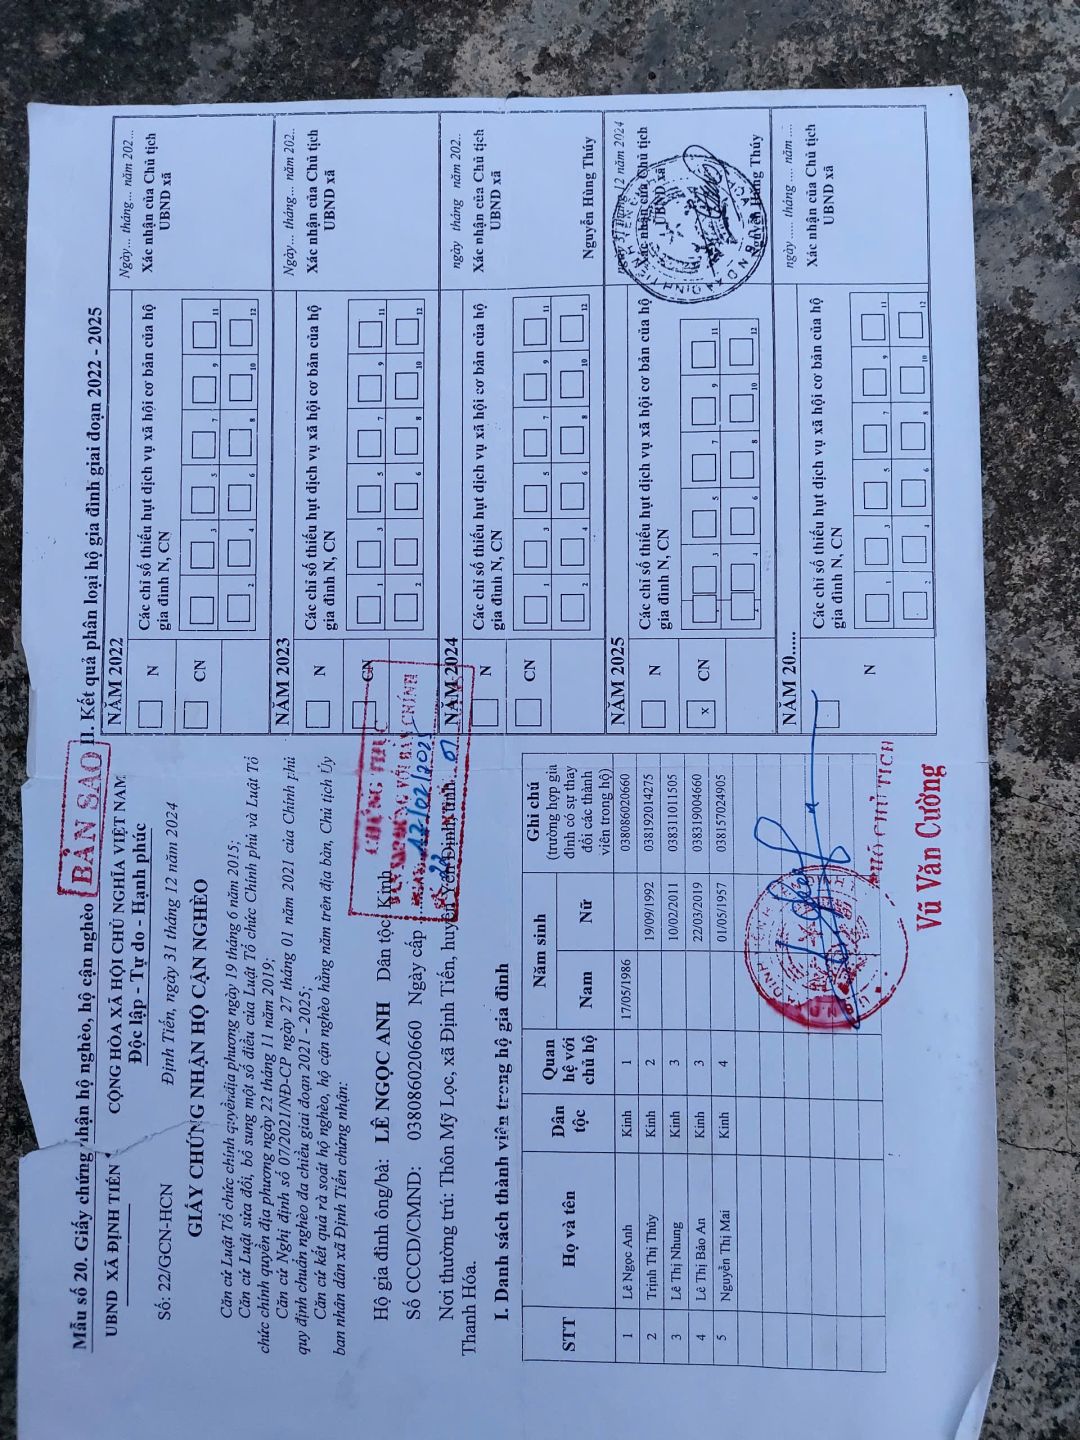 Mẫu số 20. Giấy chứng nhận hộ nghèo, hộ cận nghèo
BẢN SAO
UBND XÃ ĐỊNH TIẾN
CỘNG HÒA XÃ HỘI CHỦ NGHĨA VIỆT NAM
Độc lập - Tự do - Hạnh phúc
Số: 22/GCN-HCN
Định Tiến, ngày 31 tháng 12 năm 2024
GIẤY CHỨNG NHẬN HỘ CẬN NGHÈO
Căn cứ Luật Tổ chức chính quyền địa phương ngày 19 tháng 6 năm 2015;
Căn cứ Luật sửa đổi, bổ sung một số điều của Luật Tổ chức Chính phủ và Luật Tổ
chức chính quyền địa phương ngày 22 tháng 11 năm 2019;
Căn cứ Nghị định số 07/2021/NĐ-CP ngày 27 tháng 01 năm 2021 của Chính phủ
quy định chuẩn nghèo đa chiều giai đoạn 2021 - 2025;
Căn cứ kết quả rà soát hộ nghèo, hộ cận nghèo hằng năm trên địa bàn, Chủ tịch Ủy
ban nhân dân xã Định Tiến chứng nhận:
Hộ gia đình ông/bà: LÊ NGỌC ANH Dân tộc: Kinh
Số CCCD/CMND: 038086020660 Ngày cấp
Nơi thường trú: Thôn Mỹ Lọc, xã Định Tiến, huyện Yên Định, tỉnh
Thanh Hóa.
CHỨNG THỰC
ĐÚNG VỚI BẢN CHÍNH
12/02/2025
22 07
I. Danh sách thành viên trong hộ gia đình
STT Họ và tên Dân tộc Quan hệ với chủ hộ Năm sinh Ghi chú
Nam Nữ (trường hợp gia đình có sự thay đổi các thành viên trong hộ)
1 Lê Ngọc Anh Kinh 1 17/05/1986 038086020660
2 Trịnh Thị Thủy Kinh 2 19/09/1992 038192014275
3 Lê Thị Nhung Kinh 3 10/02/2011 038311011505
4 Lê Thị Bảo An Kinh 3 22/03/2019 038319004660
5 Nguyễn Thị Mai Kinh 4 01/05/1957 038157024905
PHÓ CHỦ TỊCH
Vũ Văn Cường
II. Kết quả phân loại hộ gia đình giai đoạn 2022 - 2025
NĂM 2022
N
CN
Các chỉ số thiếu hụt dịch vụ xã hội cơ bản của hộ
gia đình N, CN
1 3 5 7 9 11
2 4 6 8 10 12
Ngày... tháng... năm 202...
Xác nhận của Chủ tịch
UBND xã
NĂM 2023
N
CN
Các chỉ số thiếu hụt dịch vụ xã hội cơ bản của hộ
gia đình N, CN
1 3 5 7 9 11
2 4 6 8 10 12
Ngày... tháng... năm 202..
Xác nhận của Chủ tịch
UBND xã
NĂM 2024
N
CN
Các chỉ số thiếu hụt dịch vụ xã hội cơ bản của hộ
gia đình N, CN
1 3 5 7 9 11
2 4 6 8 10 12
ngày tháng năm 202..
Xác nhận của Chủ tịch
UBND xã
Nguyễn Hùng Thúy
NĂM 2025
N
x CN
Các chỉ số thiếu hụt dịch vụ xã hội cơ bản của hộ
gia đình N, CN
1 3 5 7 9 11
2 4 6 8 10 12
ngày 31 tháng 12 năm 2024
Xác nhận của Chủ tịch
UBND xã
Nguyễn Hùng Thúy
NĂM 20......
N
Các chỉ số thiếu hụt dịch vụ xã hội cơ bản của hộ
gia đình N, CN
1 3 5 7 9 11
2 4 6 8 10 12
ngày ..... tháng ..... năm ....
Xác nhận của Chủ tịch
UBND xã